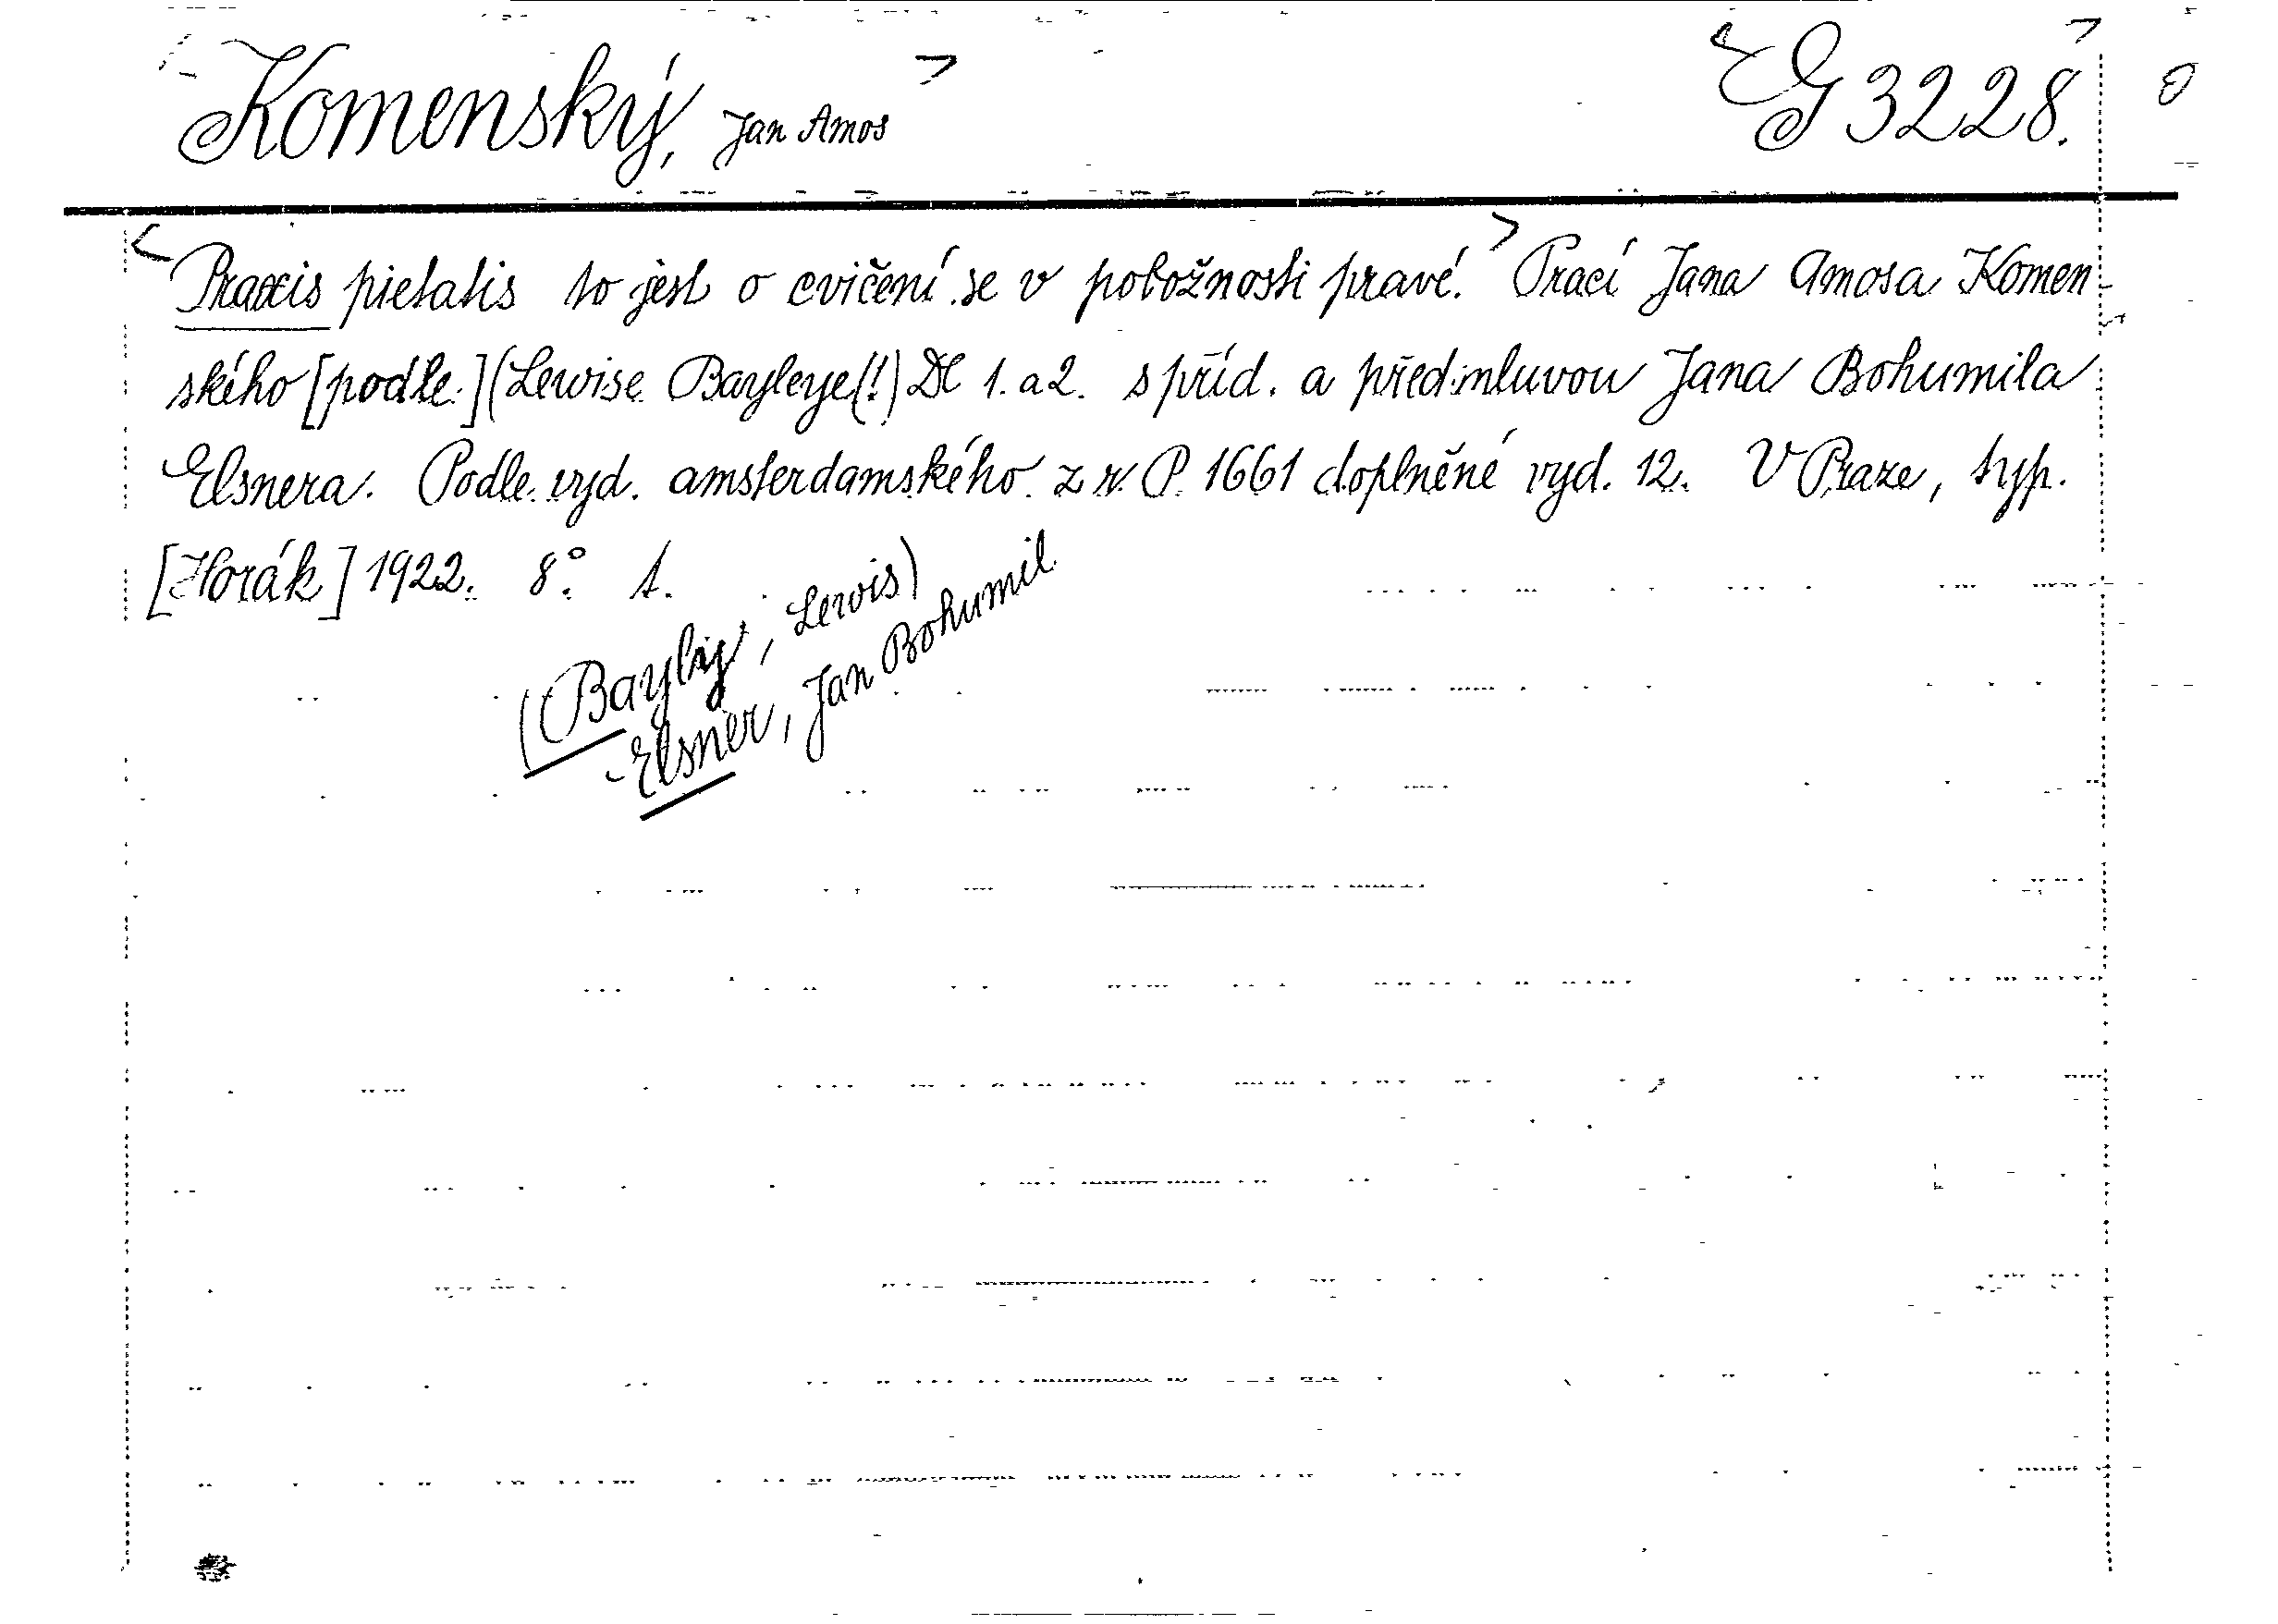 Komenský, Jan Amos
G 3228.
Praxis pietatis to jest o cvičení se v pobožnosti pravé. Prací Jana Amosa Komen-
ského [podle] (Lewise Bayleye(!) Dl 1. a 2. s příd. a předmluvou Jana Bohumila
Elsnera. Podle vyd. amsterdamského z r. P. 1661 doplněné vyd. 12. V Praze, typ.
[Horák] 1922. 8°. 1.
(Bayly, Lewis)
Elsner, Jan Bohumil